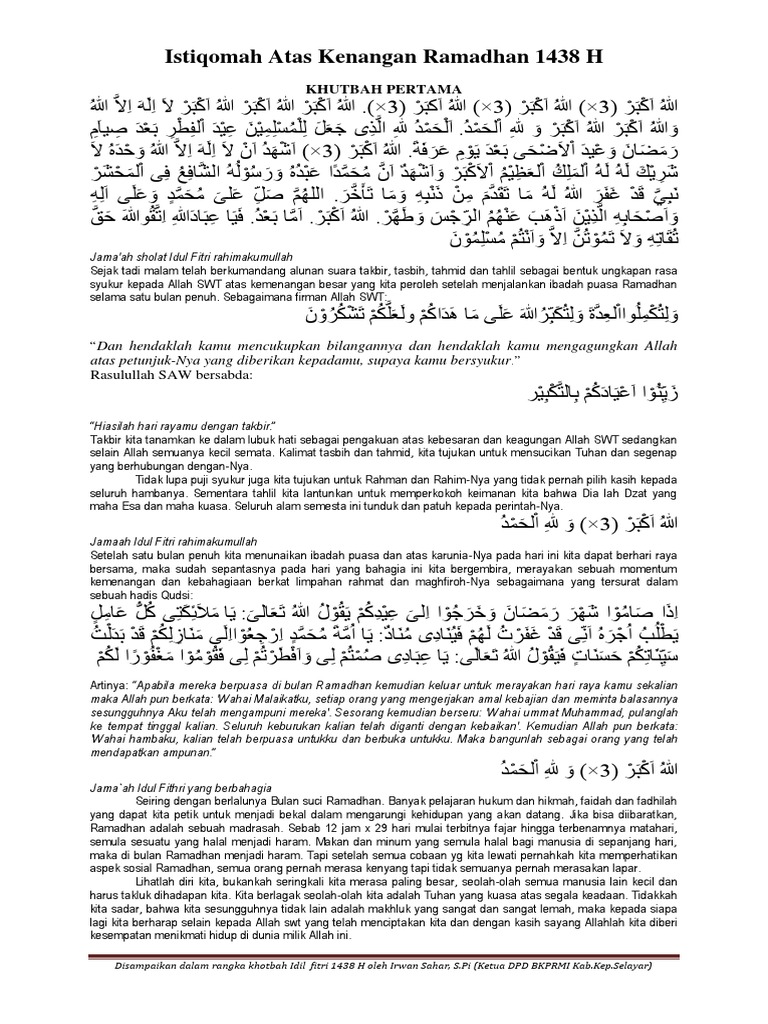 Istiqomah Atas Kenangan Ramadhan 1438 H
KHUTBAH PERTAMA
اَللهُ اَكْبَرْ (3×) اَللهُ اَكْبَرْ (3×) اَللهُ اَكبَرْ (3×). اَللهُ اَكْبَرْ اللهُ اَكْبَرْ اللهُ اَكْبَرْ لاَ اِلٰهَ اِلاَّ اللهُ
وَاللهُ اَكْبَرْ اَللهُ اَكْبَرْ وَ ِللهِ اْلحَمْدُ. اَلْحَمْدُ للهِ الَّذِى جَعَلَ لِلْمُسْلِمِيْنَ عِيْدَ اْلفِطْرِ بَعْدَ صِياَمِ
رَمَضَانَ وَعْيدَ اْلاَضْحَى بَعْدَ يَوْمِ عَرَفَةَ. اللهُ اَكْبَرْ (3×) اَشْهَدُ اَنْ لاَ اِلَهَ اِلاَّ اللهُ وَحْدَهُ لاَ
شَرِيْكَ لَهُ لَهُ اْلمَلِكُ اْلعَظِيْمُ اْلاَكْبَرْ وَاَشْهَدٌ اَنَّ مُحَمَّدًا عَبْدُهُ وَرَسُوْلُهُ الشَّافِعُ فِى اْلمَحْشَرْ
نَبِيَّ قَدْ غَفَرَ اللهُ لَهُ مَا تَقَدَّمَ مِنْ ذَنْبِهِ وَمَا تَأَخَّرَ. اللهُمَّ صَلِّ عَلىَ مُحَمَّدٍ وَعَلَى آلِهِ
وَاَصْحَابِهِ الَّذِيْنَ اَذْهَبَ عَنْهُمُ الرِّجْسَ وَطَهَّرْ. اللهُ اَكْبَرْ. اَمَّا بَعْدُ. فَيَا عِبَادَاللهِ اِتَّقُواللهَ حَقَّ
تُقَاتِهِ وَلاَ تَمُوْتُنَّ اِلاَّ وَاَنْتُمْ مُسْلِمُوْنَ
Jama'ah sholat Idul Fitri rahimakumullah
Sejak tadi malam telah berkumandang alunan suara takbir, tasbih, tahmid dan tahlil sebagai bentuk ungkapan rasa
syukur kepada Allah SWT atas kemenangan besar yang kita peroleh setelah menjalankan ibadah puasa Ramadhan
selama satu bulan penuh. Sebagaimana firman Allah SWT:
وَلِتُكْمِلُوااْلعِدَّةَ وَلِتُكَبِّرُاللهَ عَلَى مَا هَدَاكُمْ ولَعَلَّكُمْ تَشْكُرُوْنَ
“Dan hendaklah kamu mencukupkan bilangannya dan hendaklah kamu mengagungkan Allah
atas petunjuk-Nya yang diberikan kepadamu, supaya kamu bersyukur.”
Rasulullah SAW bersabda:
زَيِّنُوْا اَعْيَادَكُمْ بِالتَّكْبِيْرِ
“Hiasilah hari rayamu dengan takbir.”
Takbir kita tanamkan ke dalam lubuk hati sebagai pengakuan atas kebesaran dan keagungan Allah SWT sedangkan
selain Allah semuanya kecil semata. Kalimat tasbih dan tahmid, kita tujukan untuk mensucikan Tuhan dan segenap
yang berhubungan dengan-Nya.
Tidak lupa puji syukur juga kita tujukan untuk Rahman dan Rahim-Nya yang tidak pernah pilih kasih kepada
seluruh hambanya. Sementara tahlil kita lantunkan untuk memperkokoh keimanan kita bahwa Dia lah Dzat yang
maha Esa dan maha kuasa. Seluruh alam semesta ini tunduk dan patuh kepada perintah-Nya.
اللهُ اَكْبَرْ (3×) وَ ِللهِ اْلحَمْدُ
Jamaah Idul Fitri rahimakumullah
Setelah satu bulan penuh kita menunaikan ibadah puasa dan atas karunia-Nya pada hari ini kita dapat berhari raya
bersama, maka sudah sepantasnya pada hari yang bahagia ini kita bergembira, merayakan sebuah momentum
kemenangan dan kebahagiaan berkat limpahan rahmat dan maghfiroh-Nya sebagaimana yang tersurat dalam
sebuah hadis Qudsi:
اِذَا صَامُوْا شَهْرَ رَمَضَانَ وَخَرَجُوْا اِلىَ عِيْدِكُمْ يَقُوْلُ اللهُ تَعَالىَ: يَا مَلاَئِكَتِى كُلُّ عَامِلٍ
يَطْلُبُ اُجْرَهُ اَنِّى قَدْ غَفَرْتُ لَهُمْ فَيُنَادِى مُنَادٌ: يَا أُمَّةَ مُحَمَّدٍ اِرْجِعُوْااِلَى مَنَازِلِكُمْ قَدْ بَدَلْتُ
سَيِّئَاتِكُمْ حَسَنَاتٍ فَيَقُوْلُ اللهُ تَعَالَى: يَا عِبَادِى صُمْتُمْ لِى وَاَفْطَرْتُمْ لِى فَقُوْمُوْا مَغْفُوْرًا لَكُمْ
Artinya: “Apabila mereka berpuasa di bulan Ramadhan kemudian keluar untuk merayakan hari raya kamu sekalian
maka Allah pun berkata: 'Wahai Malaikatku, setiap orang yang mengerjakan amal kebajian dan meminta balasannya
sesungguhnya Aku telah mengampuni mereka'. Sesorang kemudian berseru: 'Wahai ummat Muhammad, pulanglah
ke tempat tinggal kalian. Seluruh keburukan kalian telah diganti dengan kebaikan'. Kemudian Allah pun berkata:
'Wahai hambaku, kalian telah berpuasa untukku dan berbuka untukku. Maka bangunlah sebagai orang yang telah
mendapatkan ampunan.”
اللهُ اَكْبَرْ (3×) وَ ِللهِ اْلحَمْدُ
Jama`ah Idul Fithri yang berbahagia
Seiring dengan berlalunya Bulan suci Ramadhan. Banyak pelajaran hukum dan hikmah, faidah dan fadhilah
yang dapat kita petik untuk menjadi bekal dalam mengarungi kehidupan yang akan datang. Jika bisa diibaratkan,
Ramadhan adalah sebuah madrasah. Sebab 12 jam x 29 hari mulai terbitnya fajar hingga terbenamnya matahari,
semula sesuatu yang halal menjadi haram. Makan dan minum yang semula halal bagi manusia di sepanjang hari,
maka di bulan Ramadhan menjadi haram. Tapi setelah semua cobaan yg kita lewati pernahkah kita memperhatikan
aspek sosial Ramadhan, semua orang pernah merasa kenyang tapi tidak semuanya pernah merasakan lapar.
Lihatlah diri kita, bukankah seringkali kita merasa paling besar, seolah-olah semua manusia lain kecil dan
harus takluk dihadapan kita. Kita berlagak seolah-olah kita adalah Tuhan yang kuasa atas segala keadaan. Tidakkah
kita sadar, bahwa kita sesungguhnya tidak lain adalah makhluk yang sangat dan sangat lemah, maka kepada siapa
lagi kita berharap selain kepada Allah swt yang telah menciptakan kita dan dengan kasih sayang Allahlah kita diberi
kesempatan menikmati hidup di dunia milik Allah ini.
Disampaikan dalam rangka khotbah Idil fitri 1438 H oleh Irwan Sahar, S.Pi (Ketua DPD BKPRMI Kab.Kep.Selayar)